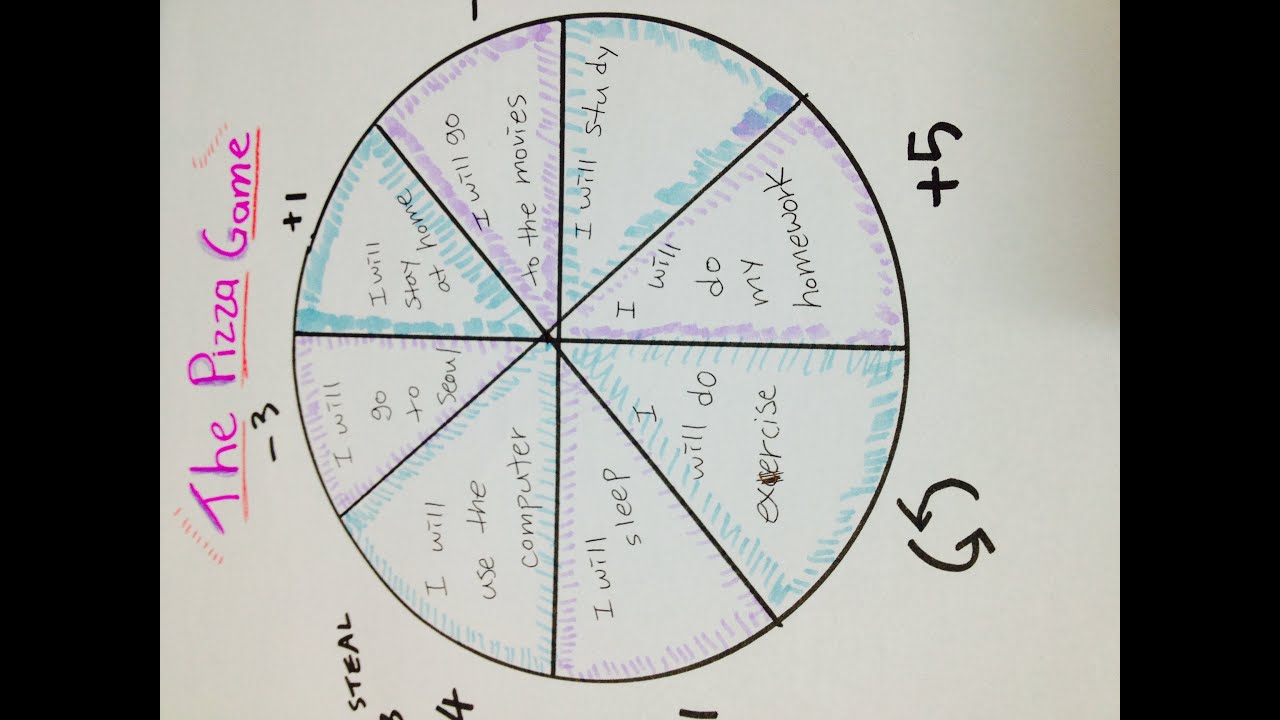 The Pizza Game
-3
+1
STEAL
3
4
1
+5
I will
go
to
Seoul
I will
stay
at home
I will
use the
computer
I will go
to the movies
I will
sleep
I will study
I
will do
exercise
I
will
do
my
homework